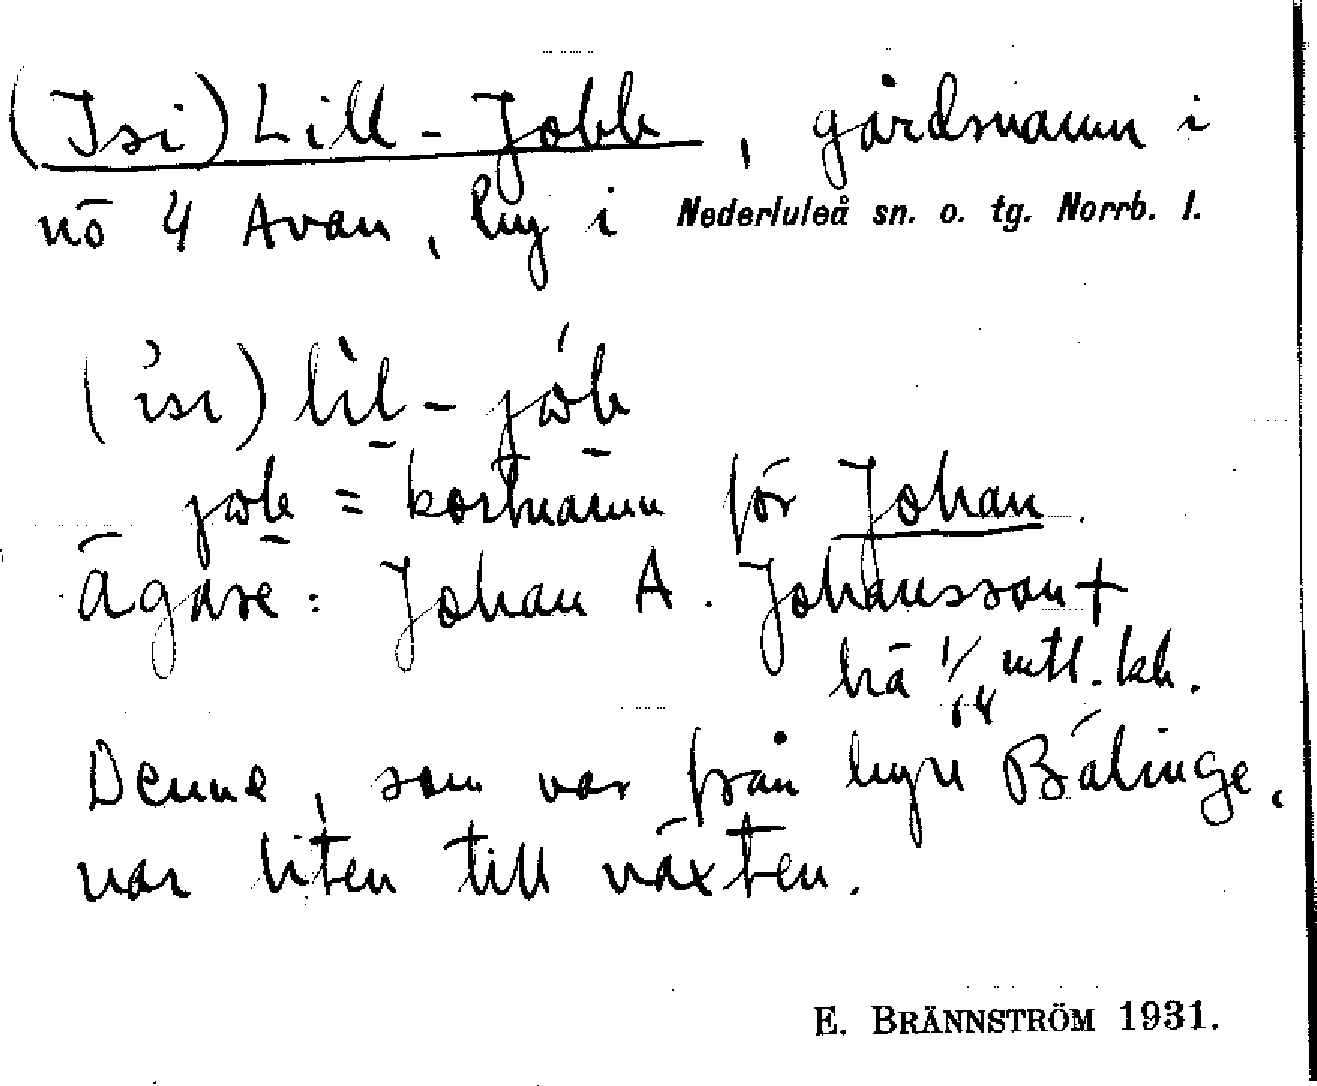 (Isi) Lill-Jobb, gårdsnamn i
nö 4 Avan, by i Nederluleå sn. o. tg. Norrb. l.
job = kortnamn för Johan.
Ägare: Johan A. Johansson +
brä 1/64 mtl. kh.
Denne, som var från byn Bälinge,
var liten till växten.
E. BRÄNNSTRÖM 1931.